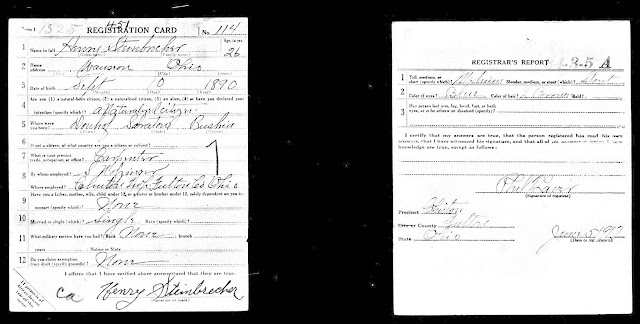 Form 1 1525 451 REGISTRATION CARD No. 114
1 Name in full Henry Steinbrecher Age, in yrs. 26
2 Home address Wauseon Ohio
3 Date of birth Sept 10 1890
4 Are you (1) a natural-born citizen, (2) a naturalized citizen, (3) an alien, (4) or have you declared your
intention (specify which)? A Naturalized citizen
5 Where were you born? Saratov Russia
6 If not a citizen, of what country are you a citizen or subject?
7 What is your present trade, occupation, or office? Carpenter
8 By whom employed?
Where employed? Clinton Twp. Fulton Co Ohio
9 Have you a father, mother, wife, child under 12, or a sister or brother under 12, solely dependent on you for
support (specify which)? None
10 Married or single (which)? Single Race (specify which)?
11 What military service have you had? Rank None branch
years Nation or State
12 Do you claim exemption from draft (specify grounds)? None
I affirm that I have verified above answers and that they are true.
1
ca Henry Steinbrecher
(Signature or mark)
REGISTRAR'S REPORT A
1 Tall, medium, or short (specify which)? Medium Slender, medium, or stout (which)? Stout
2 Color of eyes? Blue Color of hair? Brown Bald?
3 Has person lost arm, leg, hand, foot, or both
eyes, or is he otherwise disabled (specify)?
I certify that my answers are true, that the person registered has read his own
answers, that I have witnessed his signature, and that all of his answers of which I have
knowledge are true, except as follows:
(Signature of registrar)
Precinct Clinton
City or County Fulton
State Ohio
June 5 1917
(Date of registration)